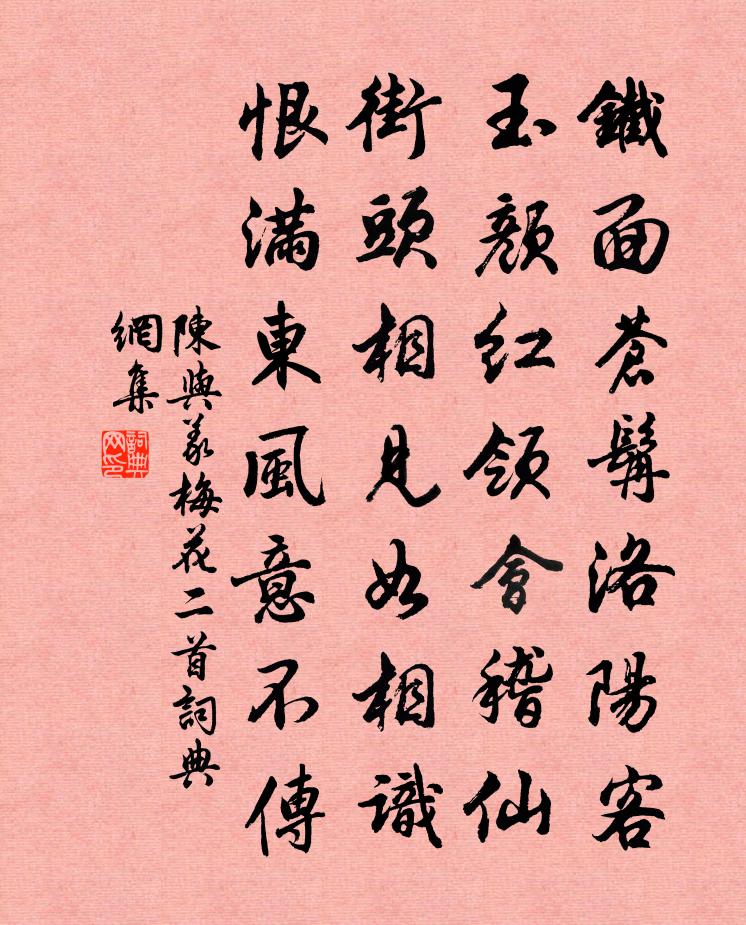 鐵面蒼髯洛陽客
玉顏紅領會稽仙
街頭相見如相識
恨滿東風意不傳
陳與義梅花二首詞典
網集
詞典網印